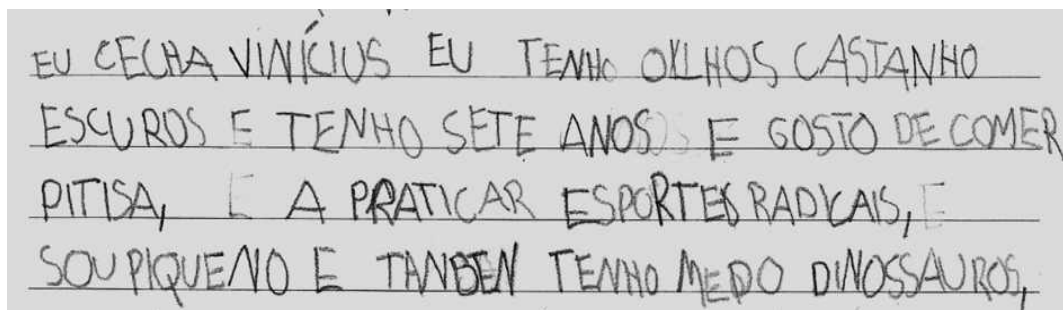 EU CECHA VINÍCIUS EU TENHO OLHOS CASTANHO
ESCUROS E TENHO SETE ANOS E GOSTO DE COMER
PITISA, E A PRATICAR ESPORTES RADICAIS, E
SOU PIQUENO E TANBEN TENHO MEDO DINOSSAUROS,